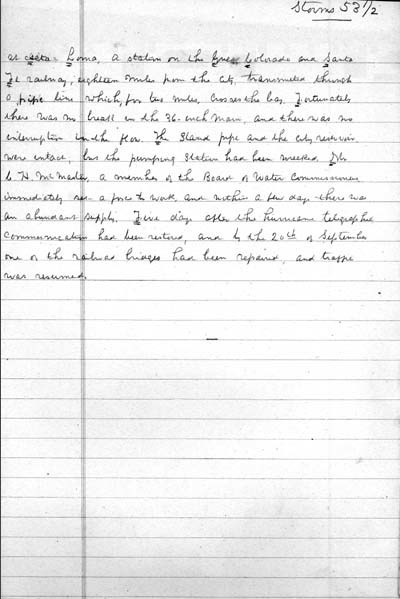 Storms 53 1/2
at Loma, a station on the Colorado and Santa
Fe railway, eighteen miles from the city, transmitted through
a pipe line which, for two miles, crosses the bay. Fortunately
there was no break in the 36-inch main, and there was no
interruption in the flow. The stand pipe and the city reservoir
were intact, but the pumping station had been wrecked. Mr
C. H. McMaster, a member of the Board of Water Commissioners
immediately a force to work and within a few days there was
an abundant supply. Five days after the hurricane telegraphic
communication had been restored, and by the 20th of September
one of the railroad bridges had been repaired, and traffic
was resumed.